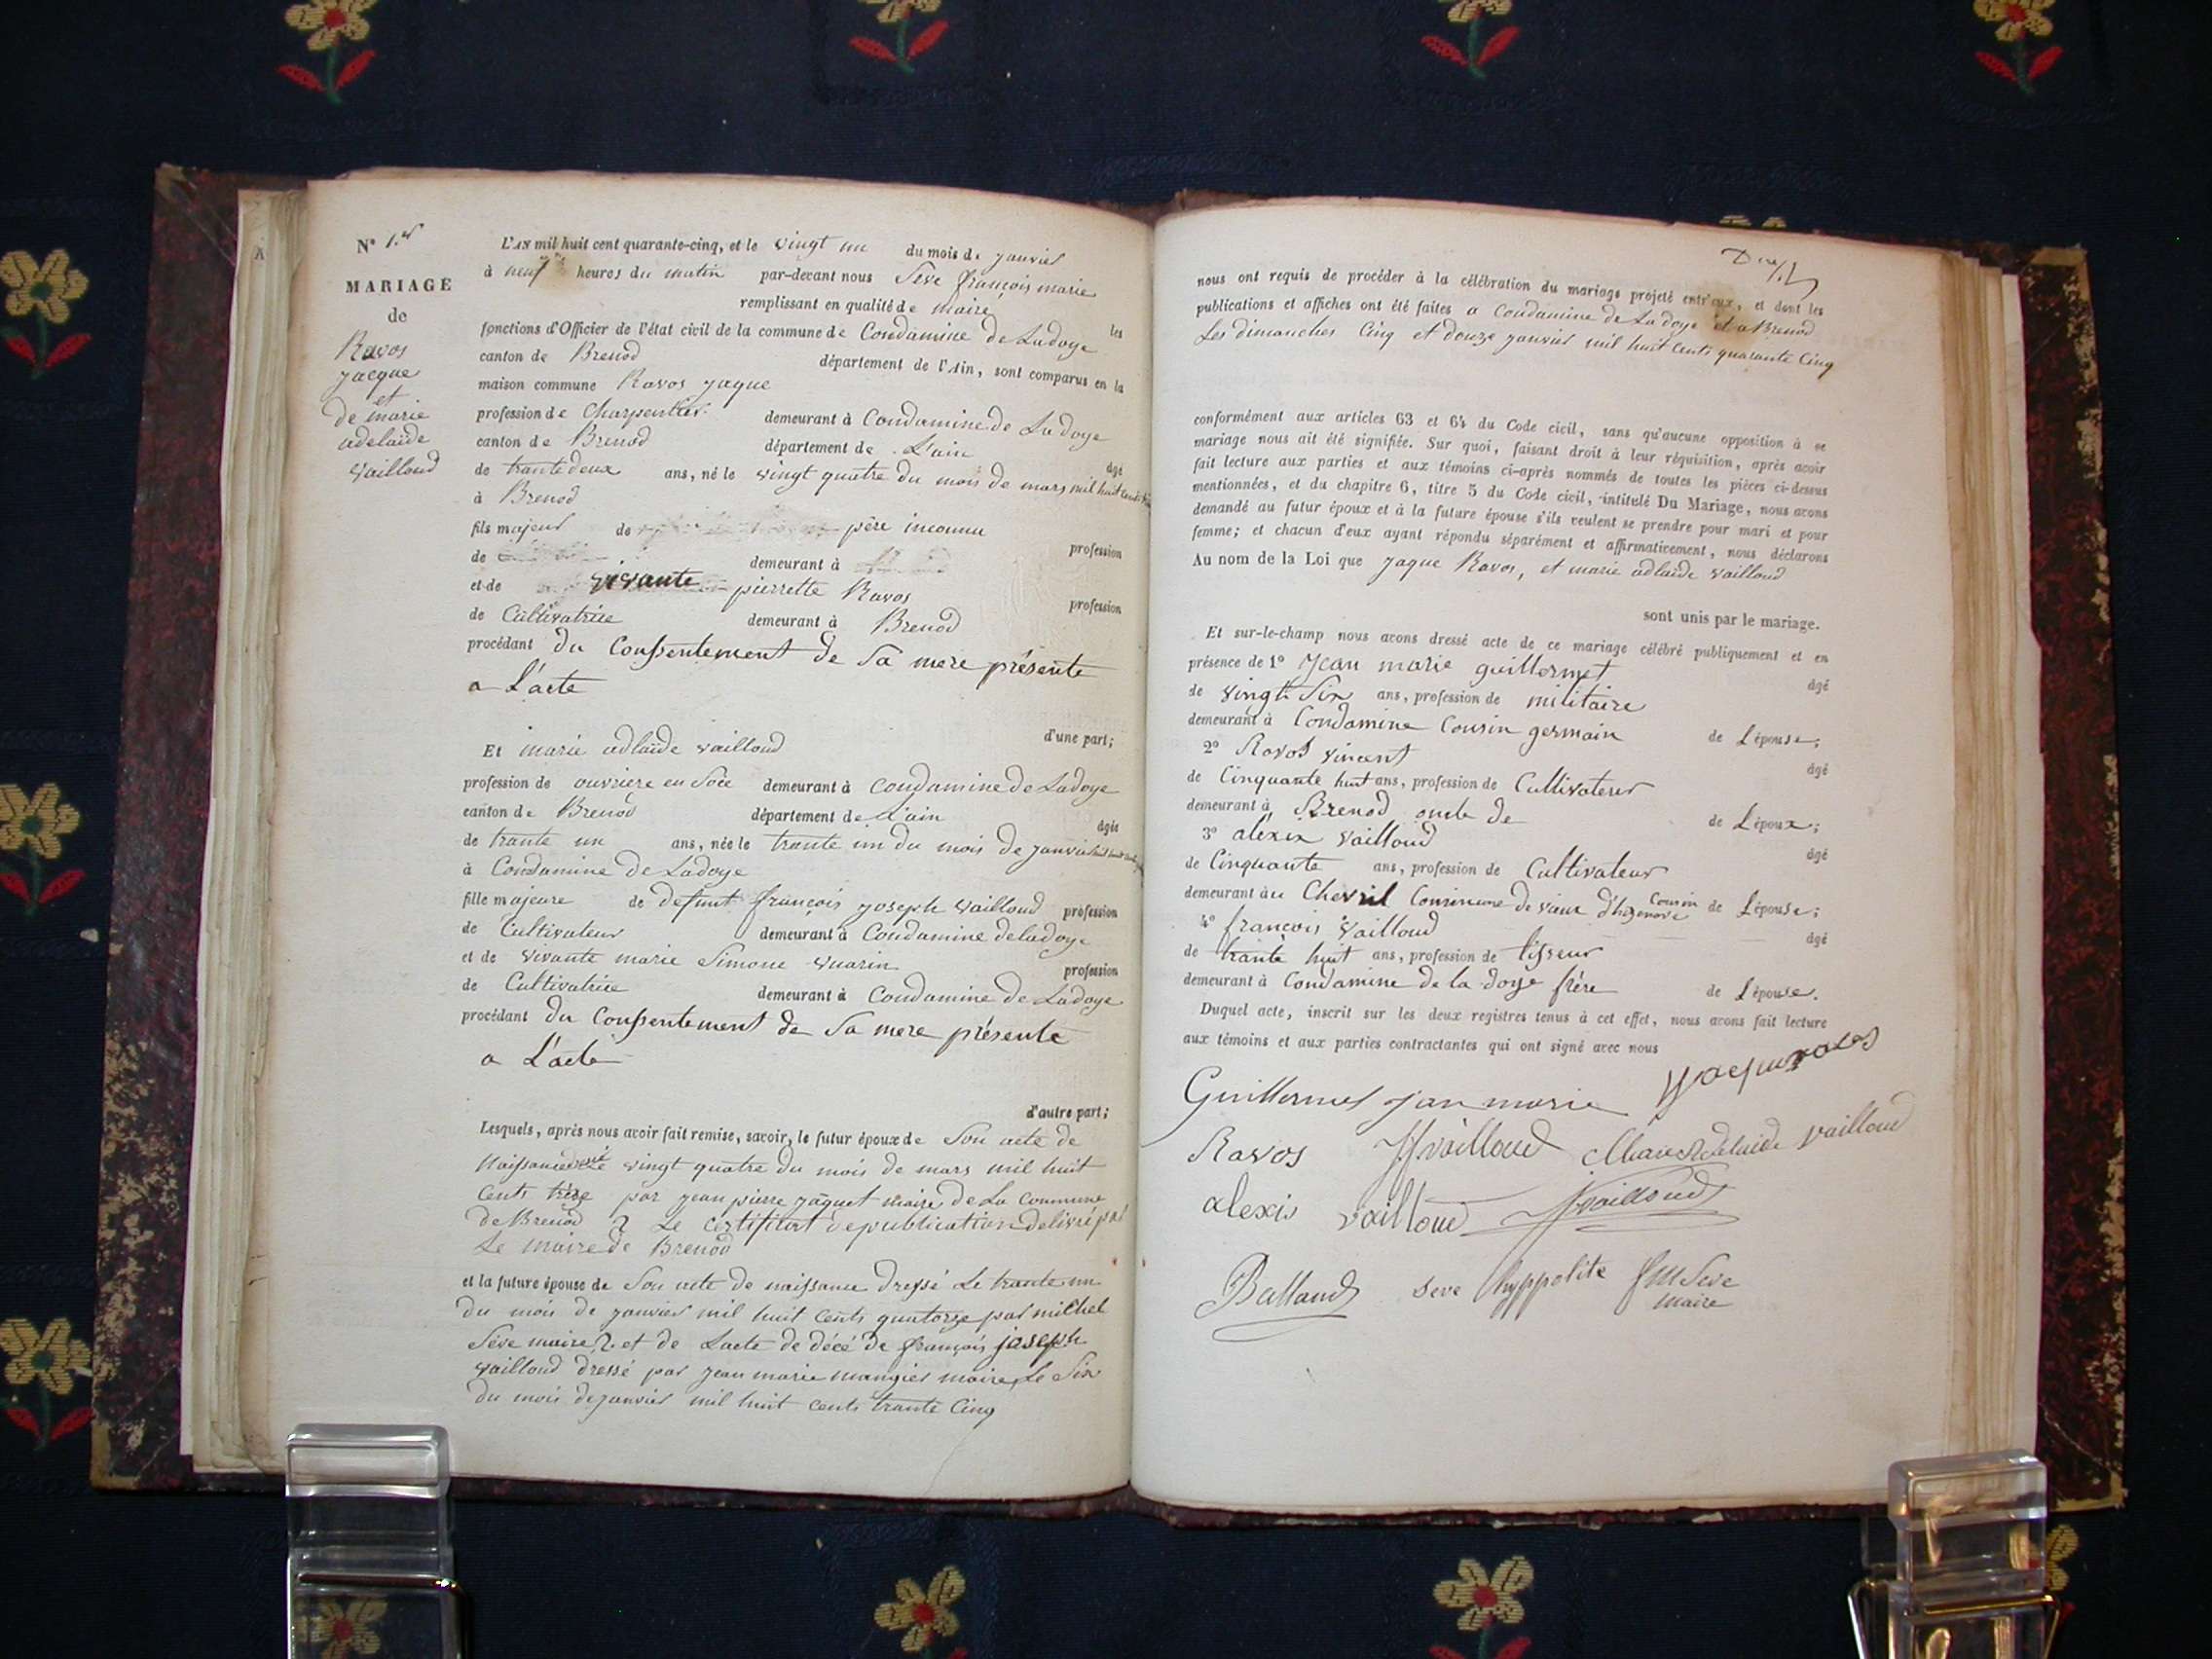 N° 1.er
MARIAGE
de
Ravos
jacque
et
de marie
adelaide
vailloud
L'AN mil huit cent quarante-cinq, et le vingt un du mois de janvier
à neuf heures du matin par-devant nous Seve françois marie
remplissant en qualité de maire les
fonctions d'Officier de l'état civil de la commune de Condamine de Ladoye
canton de Brenod département de l'Ain, sont comparus en la
maison commune Ravos jaque
profession de Charpentier demeurant à Condamine de Ladoye
canton de Brenod département de L'ain âgé
de trante deux ans, né le vingt quatre du mois de mars mil huit
à Brenod
fils majeur de père inconnu
profession
de demeurant à
et de vivante pierrette Ravos profession
de Cultivatrice demeurant à Brenod
procédant du Consentement de Sa mere présente
a L'acte
d'une part;
Et marie adlaide vailloud
profession de ouvriere en Soie demeurant à condamine de Ladoye
canton de Brenod département de L'ain âgée
de trante un ans, née le trante un du mois de janvier
à Condamine de Ladoye
fille majeure de defunt françois joseph vailloud profession
de Cultivateur demeurant à Condamine deladoye
et de vivante marie Simone vuarin profession
de Cultivatrice demeurant à Condamine de Ladoye
procédant du Consentement de Sa mere présente
a L'acte
d'autre part;
Lesquels, après nous avoir fait remise, savoir, le futur époux de Son acte de
vingt quatre du mois de mars mil huit
Cents treze par jean pierre jaquet maire de La Commune
de Brenod 2 Le certificat de publication delivré par
Le maire de Brenod
et la future épouse de Son acte de naissance dressé Le trante un
du mois de janvier mil huit cents quatorze par michel
Séve maire 2. et de Lacte de décé de françois joseph
vailloud dressé par jean marie mangier maire Le Six
du mois de janvier mil huit cents trante Cinq
nous ont requis de procéder à la célébration du mariage projeté entr'eux, et dont les
publications et affiches ont été faites a Condamine de La doye et a Brenod
Les dimanches Cinq et douze janvier mil huit Cents quarante Cinq
conformément aux articles 63 et 64 du Code civil, sans qu'aucune opposition à ce
mariage nous ait été signifiée. Sur quoi, faisant droit à leur réquisition, après avoir
fait lecture aux parties et aux témoins ci-après nommés de toutes les pièces ci-dessus
mentionnées, et du chapitre 6, titre 5 du Code civil, intitulé Du Mariage, nous avons
demandé au futur époux et à la future épouse s'ils veulent se prendre pour mari et pour
femme; et chacun d'eux ayant répondu séparément et affirmativement, nous déclarons
Au nom de la Loi que jaque Ravos, et marie adlaide vailloud
sont unis par le mariage.
Et sur-le-champ nous avons dressé acte de ce mariage célébré publiquement et en
présence de 1° Jean marie guillermet âgé
de vingt Six ans, profession de militaire
demeurant à Condamine Cousin germain de Lépouse;
2° Ravos vincent âgé
de Cinquante huit ans, profession de Cultivateur
demeurant à Brenod oncle de de Lépoux;
3° alexix vailloud âgé
de Cinquante ans, profession de Cultivateur
demeurant àu Chevril Commune de vieux d'hizenove Cousin de Lépouse;
4° francois vailloud âgé
de trante huit ans, profession de tisseur
demeurant à Condamine de la doye frère de Lépouse.
Duquel acte, inscrit sur les deux registres tenus à cet effet, nous avons fait lecture
aux témoins et aux parties contractantes qui ont signé avec nous
Guillermet jan marie Jacque ravos
Ravos vailloud Marie adelaide vailloud
alexis vailloud vailloud
Balland seve hyppolite fM Seve
maire